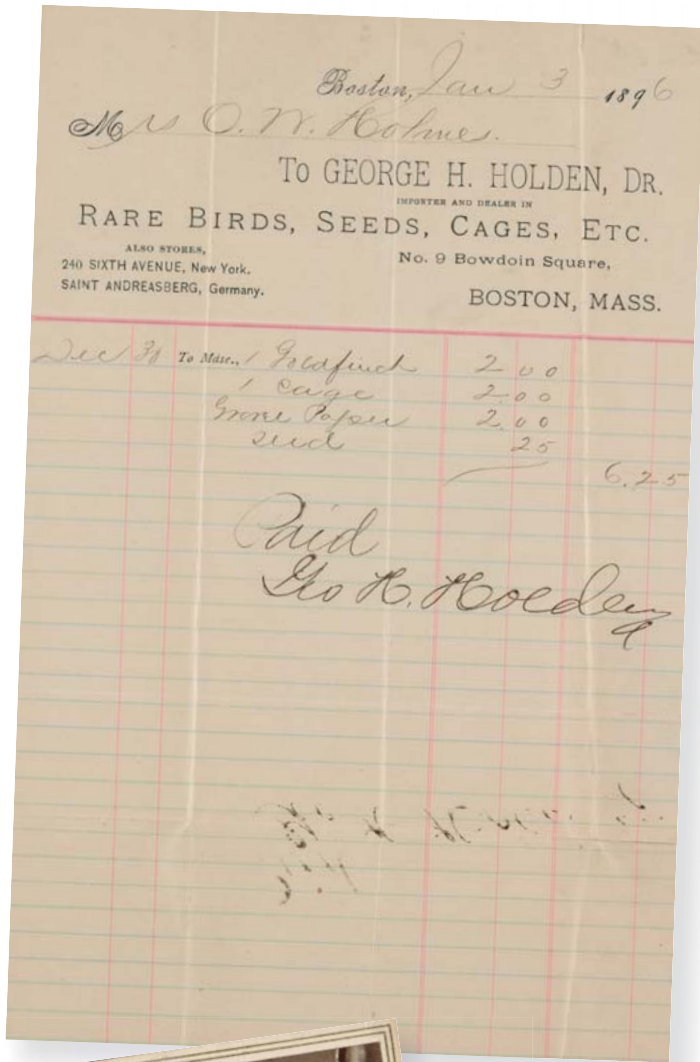 Boston, Jan 3 1896
Mrs O. W. Holmes.
To GEORGE H. HOLDEN, DR.
IMPORTER AND DEALER IN
RARE BIRDS, SEEDS, CAGES, ETC.
ALSO STORES,
240 SIXTH AVENUE, New York.
SAINT ANDREASBERG, Germany.
No. 9 Bowdoin Square,
BOSTON, MASS.
Dec 30 To Mdse., 1 Goldfinch 2 00
1 Cage 2.00
Paper 2.00
seed 25
6.25
Paid
Geo H. Holden